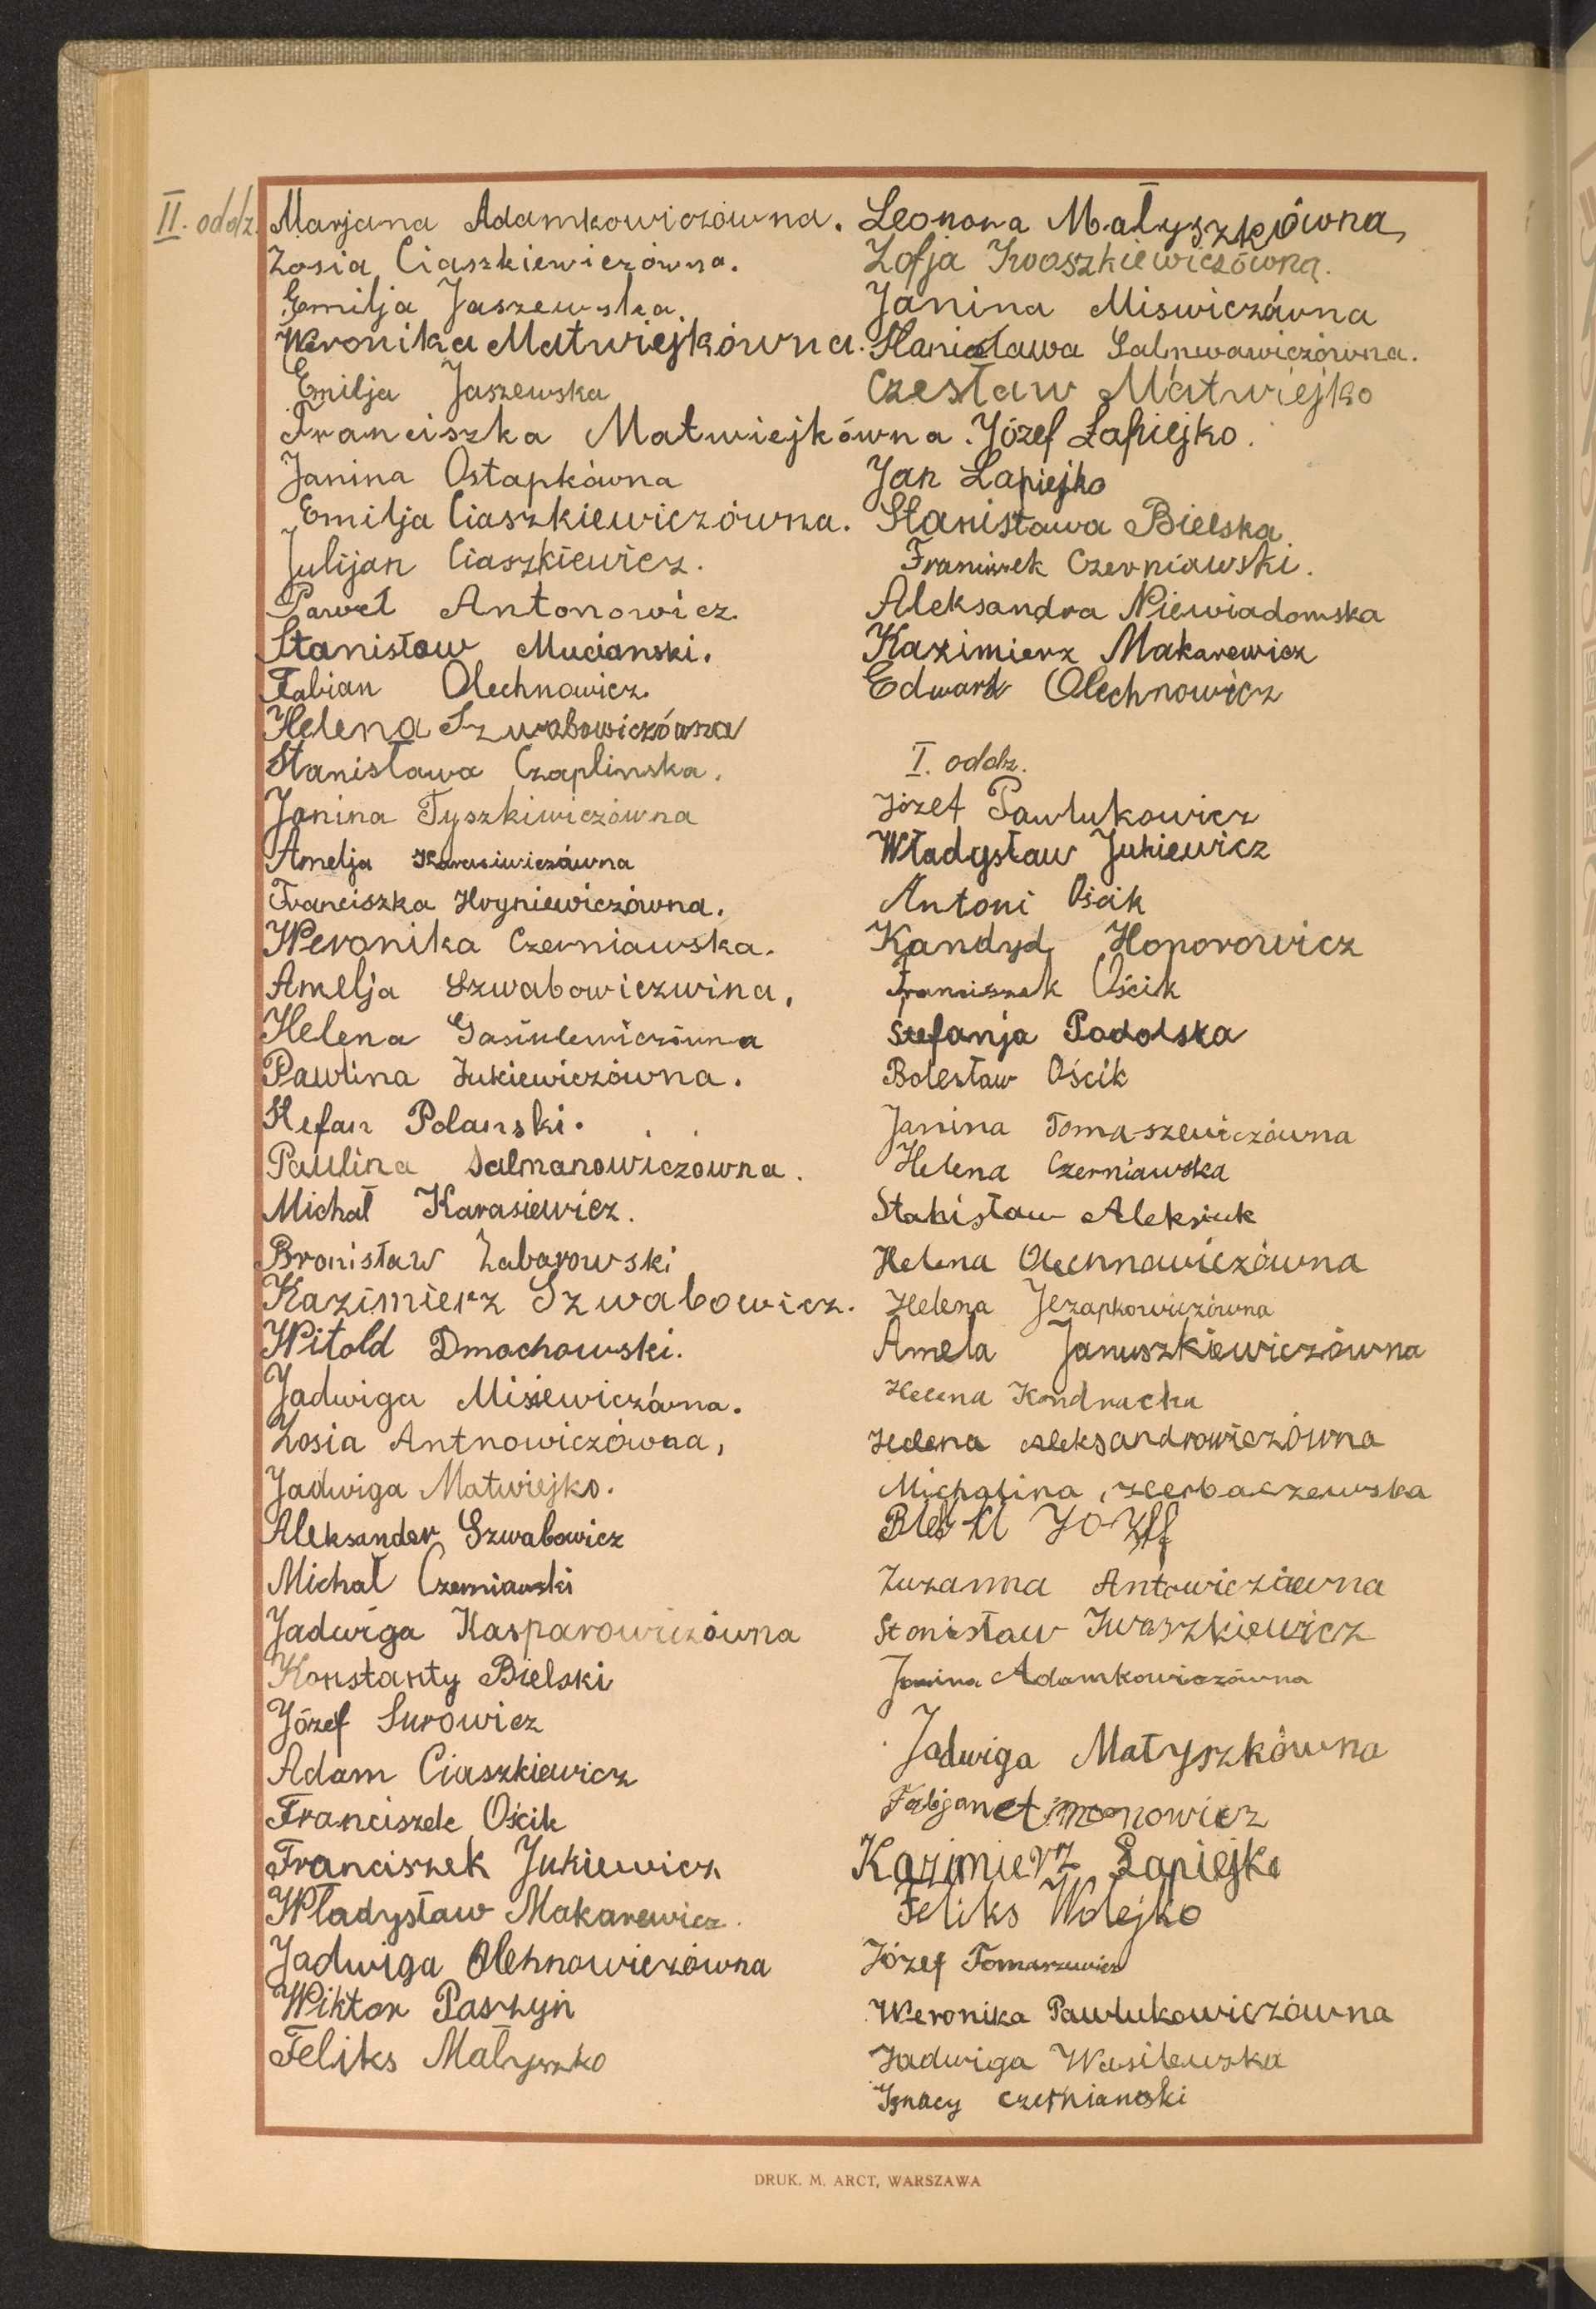 II. oddz.
Marjana Adamkowiczówna.
Zosia Ciaszkiewiczówna.
Emilja Jaszewska.
Weronika Matwiejkówna.
Emilja Jaszewska
Franciszka Matwiejkówna.
Janina Ostapkówna
Emilja Ciaszkiewiczówna.
Julijan Ciaszkiewicz.
Paweł Antonowicz.
Stanisław Mucianski.
Fabian Olechnowicz.
Helena Szwabowiczówna
Stanisława Czaplinska.
Janina Tyszkiwiczówna
Amelja Karasiwiczówna
Franciszka Hryniewiczówna.
Weronika Czerniawska.
Amelja Szwabowiczwina.
Helena Gasiulewiczówna
Pawlina Jukiewiczówna.
Stefan Polanski.
Paulina Salmanowiczówna.
Michał Karasiewicz.
Bronisław Zaborowski
Kazimierz Szwabowicz.
Witold Dmochowski.
Jadwiga Misiewiczówna.
Zosia Antnowiczówna,
Jadwiga Matwiejko.
Aleksander Szwabowicz
Michał Czerniawski
Jadwiga Kasparowiczówna
Konstanty Bielski
Józef Surowicz
Adam Ciaszkiewicz
Franciszek Ościk
Franciszek Jukiewicz
Władysław Makarewicz.
Jadwiga Olehnowiczówna
Wiktor Paszyn
Feliks Małyszko
Leonora Małyszkówna,
Zofja Iwaszkiewiczówna.
Janina Miswiczówna
Stanisława
Czesław Matwiejko
Józef Łapiejko.
Jan Łapiejko
Stanisława Bielska.
Franciszek Czerniawski.
Aleksandra Niewiadomska
Kazimierz Makarewicz
Edward Olechnowicz
I. oddz.
Józef Pawlukowicz
Władysław Jukiewicz
Antoni Ościk
Kandyd Hoporowicz
Franciszek Ościk
Stefanja Podolska
Bolesław Ościk
Janina Tomaszewiczówna
Helena Czerniawska
Stanisław Aleksiuk
Helena Olechnowiczówna
Helena Jczapkowiczówna
Amela Januszkiewiczówna
Helena Kondracka
Helena Aleksandrowiczówna
Michalina
Zuzanna
Stanisław Iwaszkiewicz
Janina Adamkowiczówna
Jadwiga Matyszkówna
Fabjan
Kazimierz Łapiejko
Feliks Wolejko
Józef Tomaszewicz
Weronika Pawlukowiczówna
Jadwiga Wasilewska
Ignacy Czerniawski
DRUK. M. ARCT, WARSZAWA